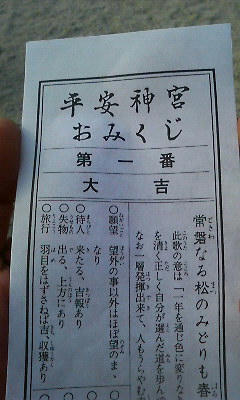 平安神宮
おみくじ
第一番
大吉
常磐なる松のみどりも春
此歌の意は「一年を通じ色に変りな
を清く正しく自分が選んだ道を歩んで
なお一層発揮出来て、人もうらやむ
○願望 望外の事以外はほぼ望のまゝ
なり
○待人 来たる、吉報あり
○失物 出る、上方にあり
○旅行 羽目をはずさねば吉、収穫あり